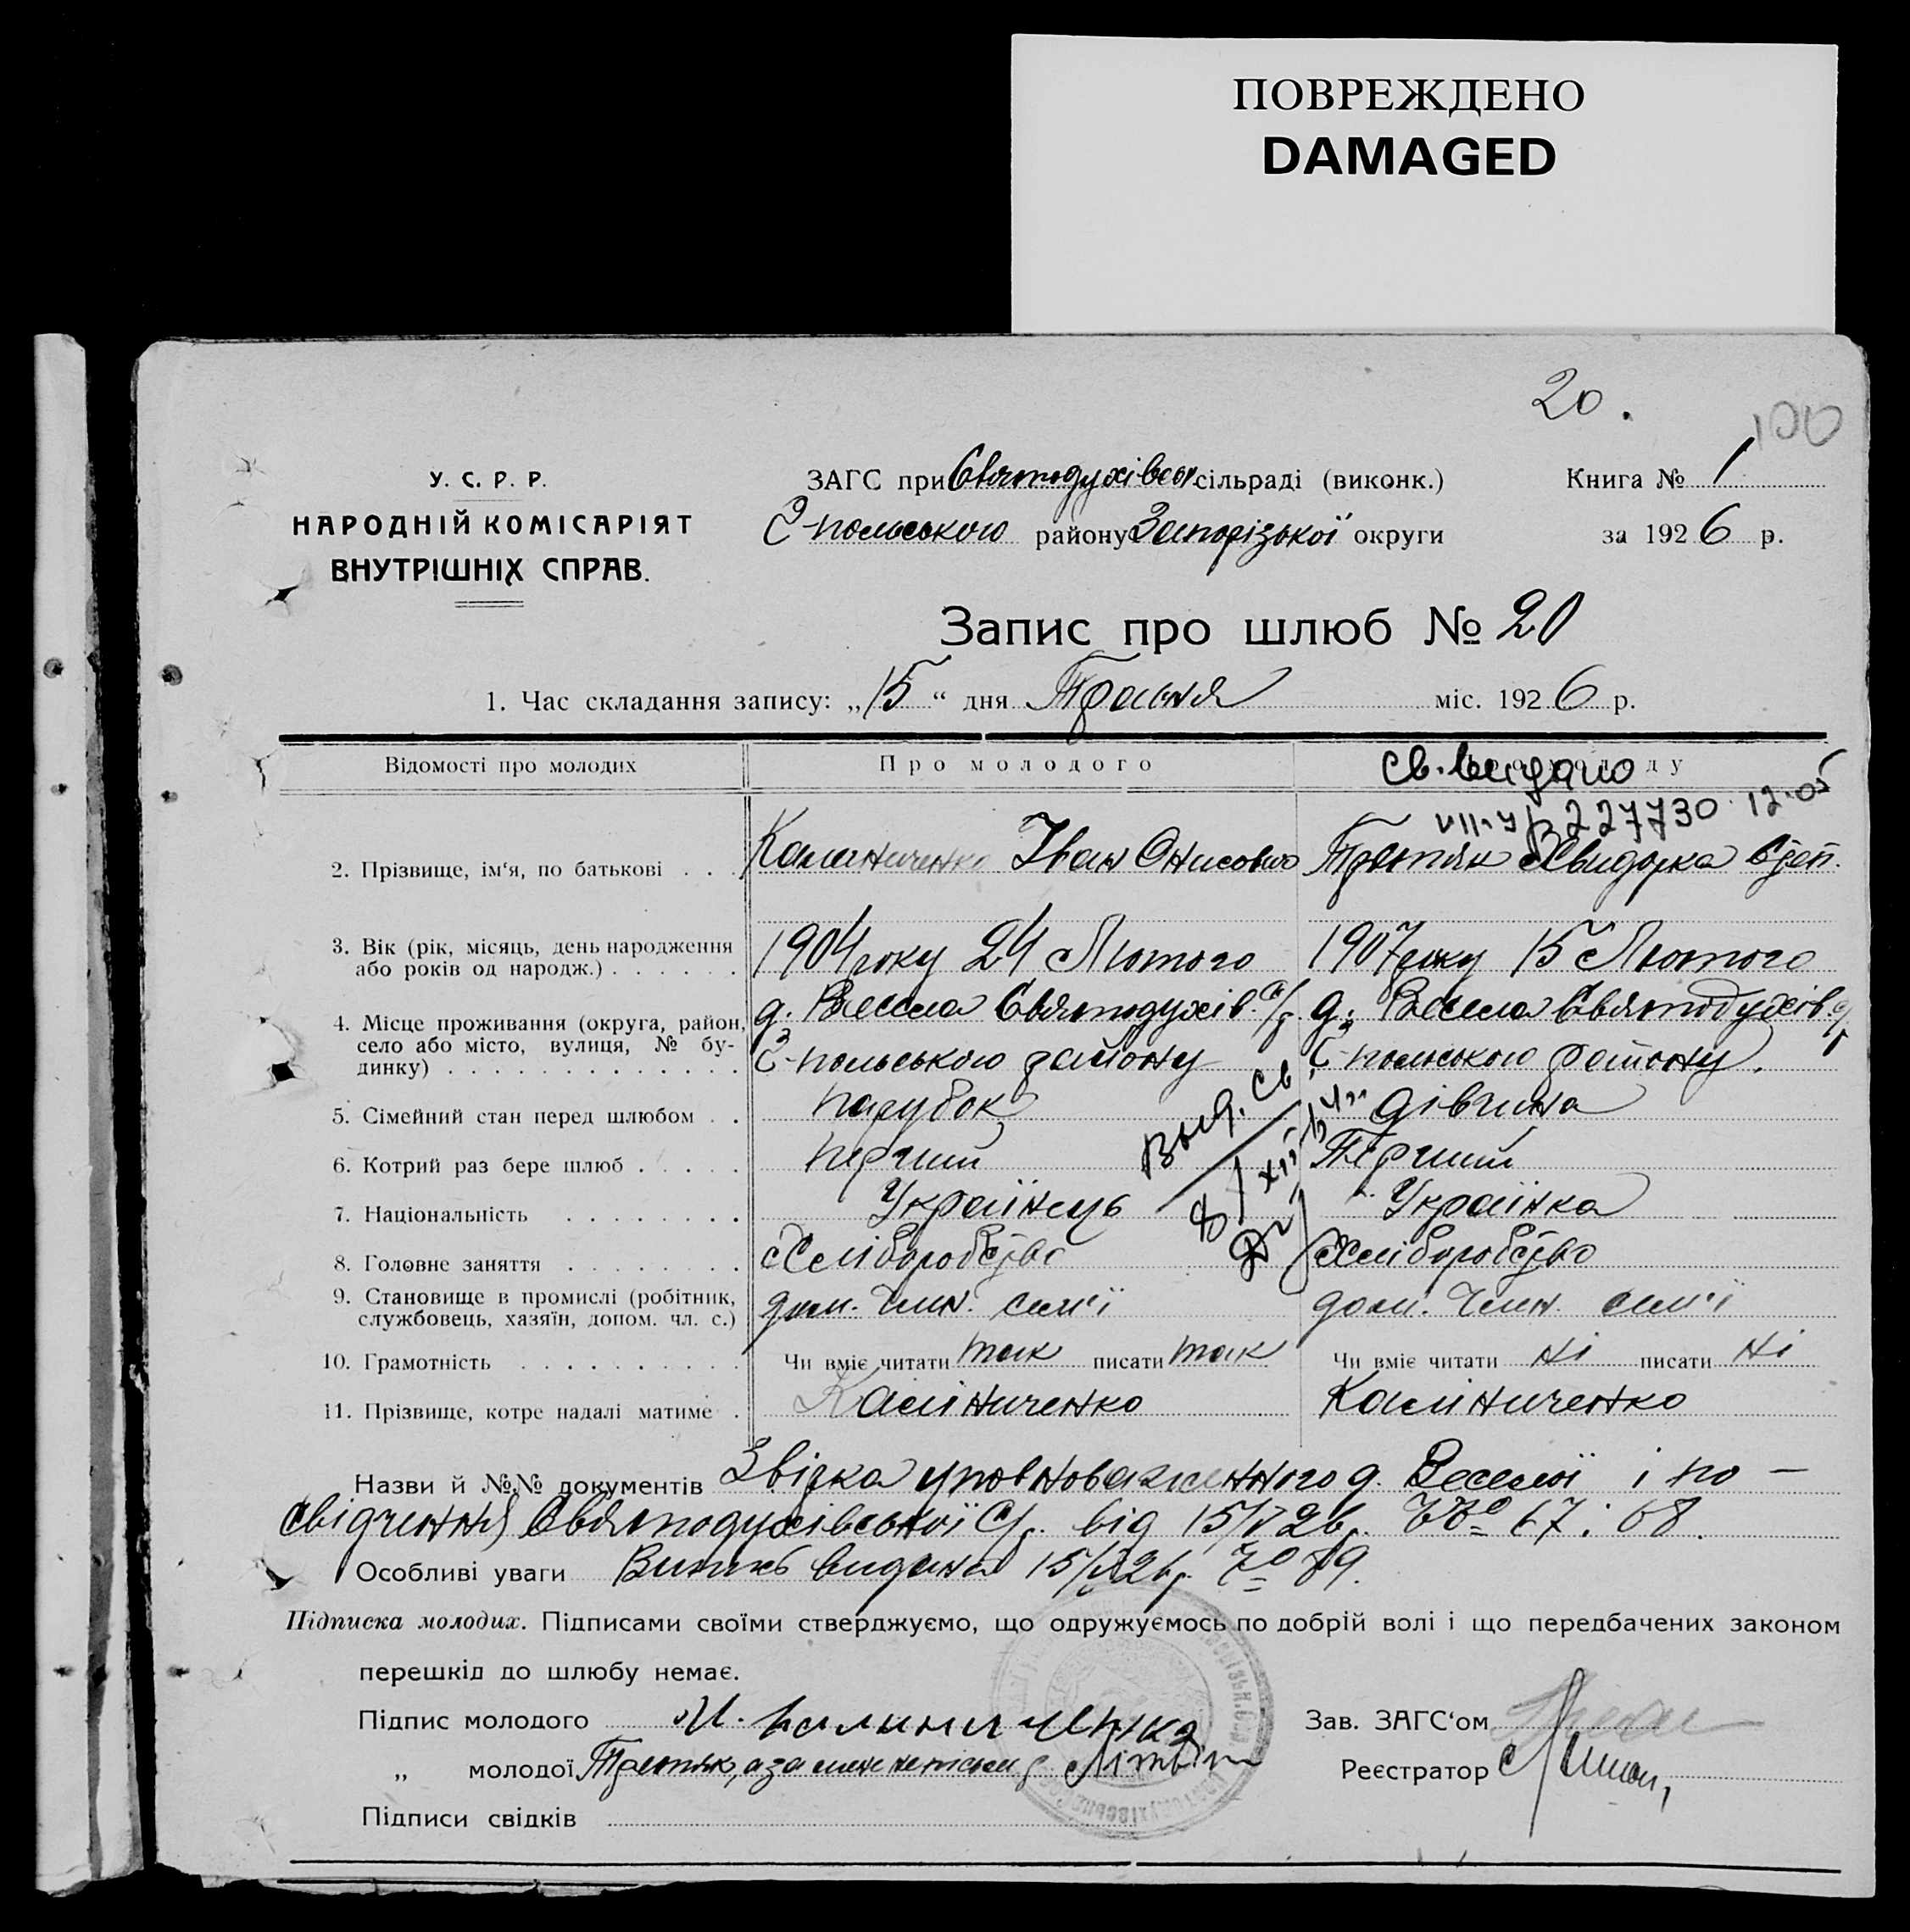 ПОВРЕЖДЕНО
DAMAGED
20.
100
У. С. Р. Р.
НАРОДНІЙ КОМІСАРІЯТ
ВНУТРІШНІХ СПРАВ.
ЗАГС при Святодухівськ. сільраді (виконк.)
С-польського району Запорізької округи
Книга № 1
за 1926 р.
Запис про шлюб № 20
1. Час складання запису: „15“ дня Травня міс. 1926 р.
Відомості про молодих
Про молодого
Св. видано
227730 12.05
2. Прізвище, ім‘я, по батькові . . .
Калиниченко Іван Онисович
Третяк Свидорка Степ.
3. Вік (рік, місяць, день народження
або років од народж.) . . . . . .
1904 року 24 Лютого
1907 року 15 Лютого
4. Місце проживання (округа, район,
село або місто, вулиця, № бу-
динку) . . . . . . . . . . . . .
д. Весела Святодухів. С/р.
С-польського району
д. Весела Святодухів. с/р
С-польського району.
5. Сімейний стан перед шлюбом . .
парубок
дівчина
Выд. Св
6. Котрий раз бере шлюб . . . . .
перший
Перший
7. Національність . . . . . . . .
Українець
Українка
8. Головне заняття . . . . . . . .
Хліборобство
Хліборобство
9. Становище в промислі (робітник,
службовець, хазяїн, допом. чл. с.)
дом. член. сем'ї
дом. член. сем'ї
10. Грамотність . . . . . . . . . .
Чи вміє читати так писати так
Чи вміє читати ні писати ні
11. Прізвище, котре надалі матиме .
Калініченко
Калініченко
Назви й №№ документів Звірка уповноваженного д. Веселої і по-
свідчення Святодухівської С/р. від 15/V 26 р. № 67 і 68.
Особливі уваги Випись видана 15/V 26 р. № 89.
Підписка молодих. Підписами своїми стверджуємо, що одружуємось по добрій волі і що передбачених законом
перешкід до шлюбу немає.
Підпис молодого И. Калиниченко
„ молодої Третяк, а за Литвін
Підписи свідків
Зав. ЗАГС‘ом
Реєстратор